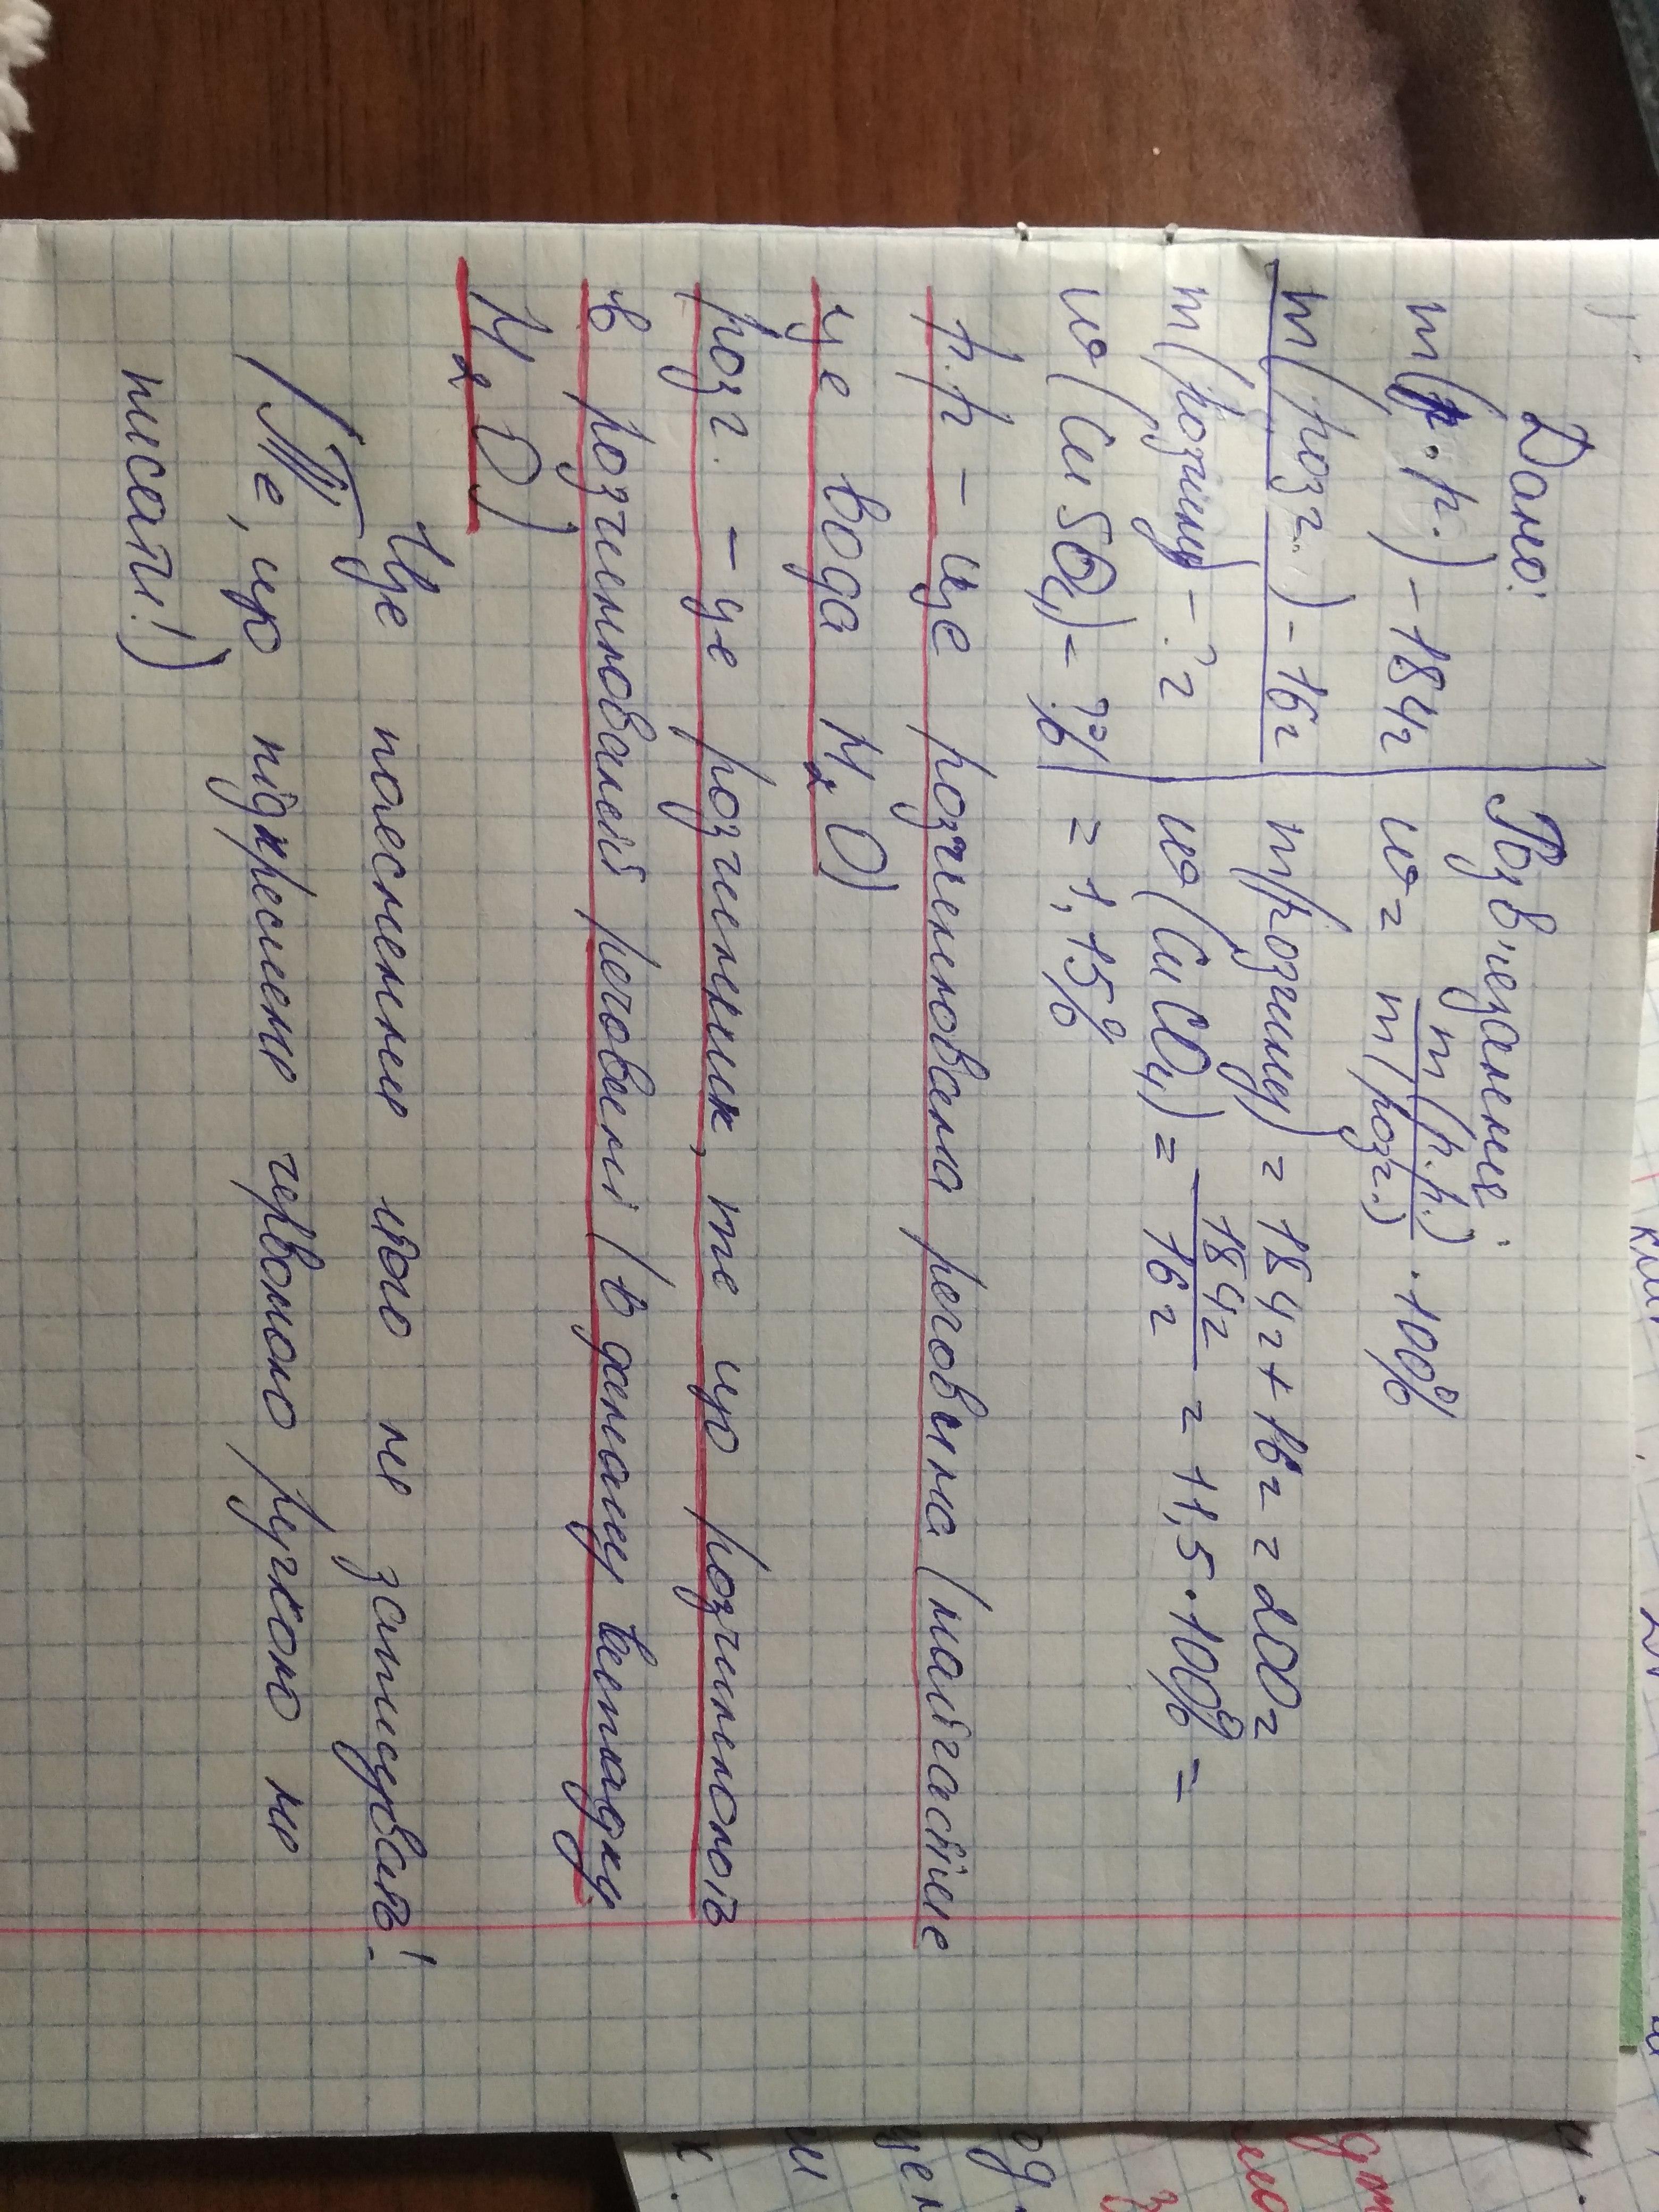 Дано:
m(р.р.) - 184г
m(розч.) - 16г
m(розчину) - ? г
ω(CuSO₄) = ?%
Розв'язання:
ω = m(р.р.) / m(розч.) · 100%
m(розчину) = 184г + 16г = 200г
ω(CuCO₄) = 184г / 16г = 11,5 · 100% =
= 1,15%
р.р - це розчиннована речовина (найчастіше
це вода H₂O)
розч. - це розчинник, те що розчиняють
в розчиннованій речовині (в даному випадку
H₂O)
Це пояснення його не записувать!
(Те, що підкреслене червоною ручкою не
писать!)